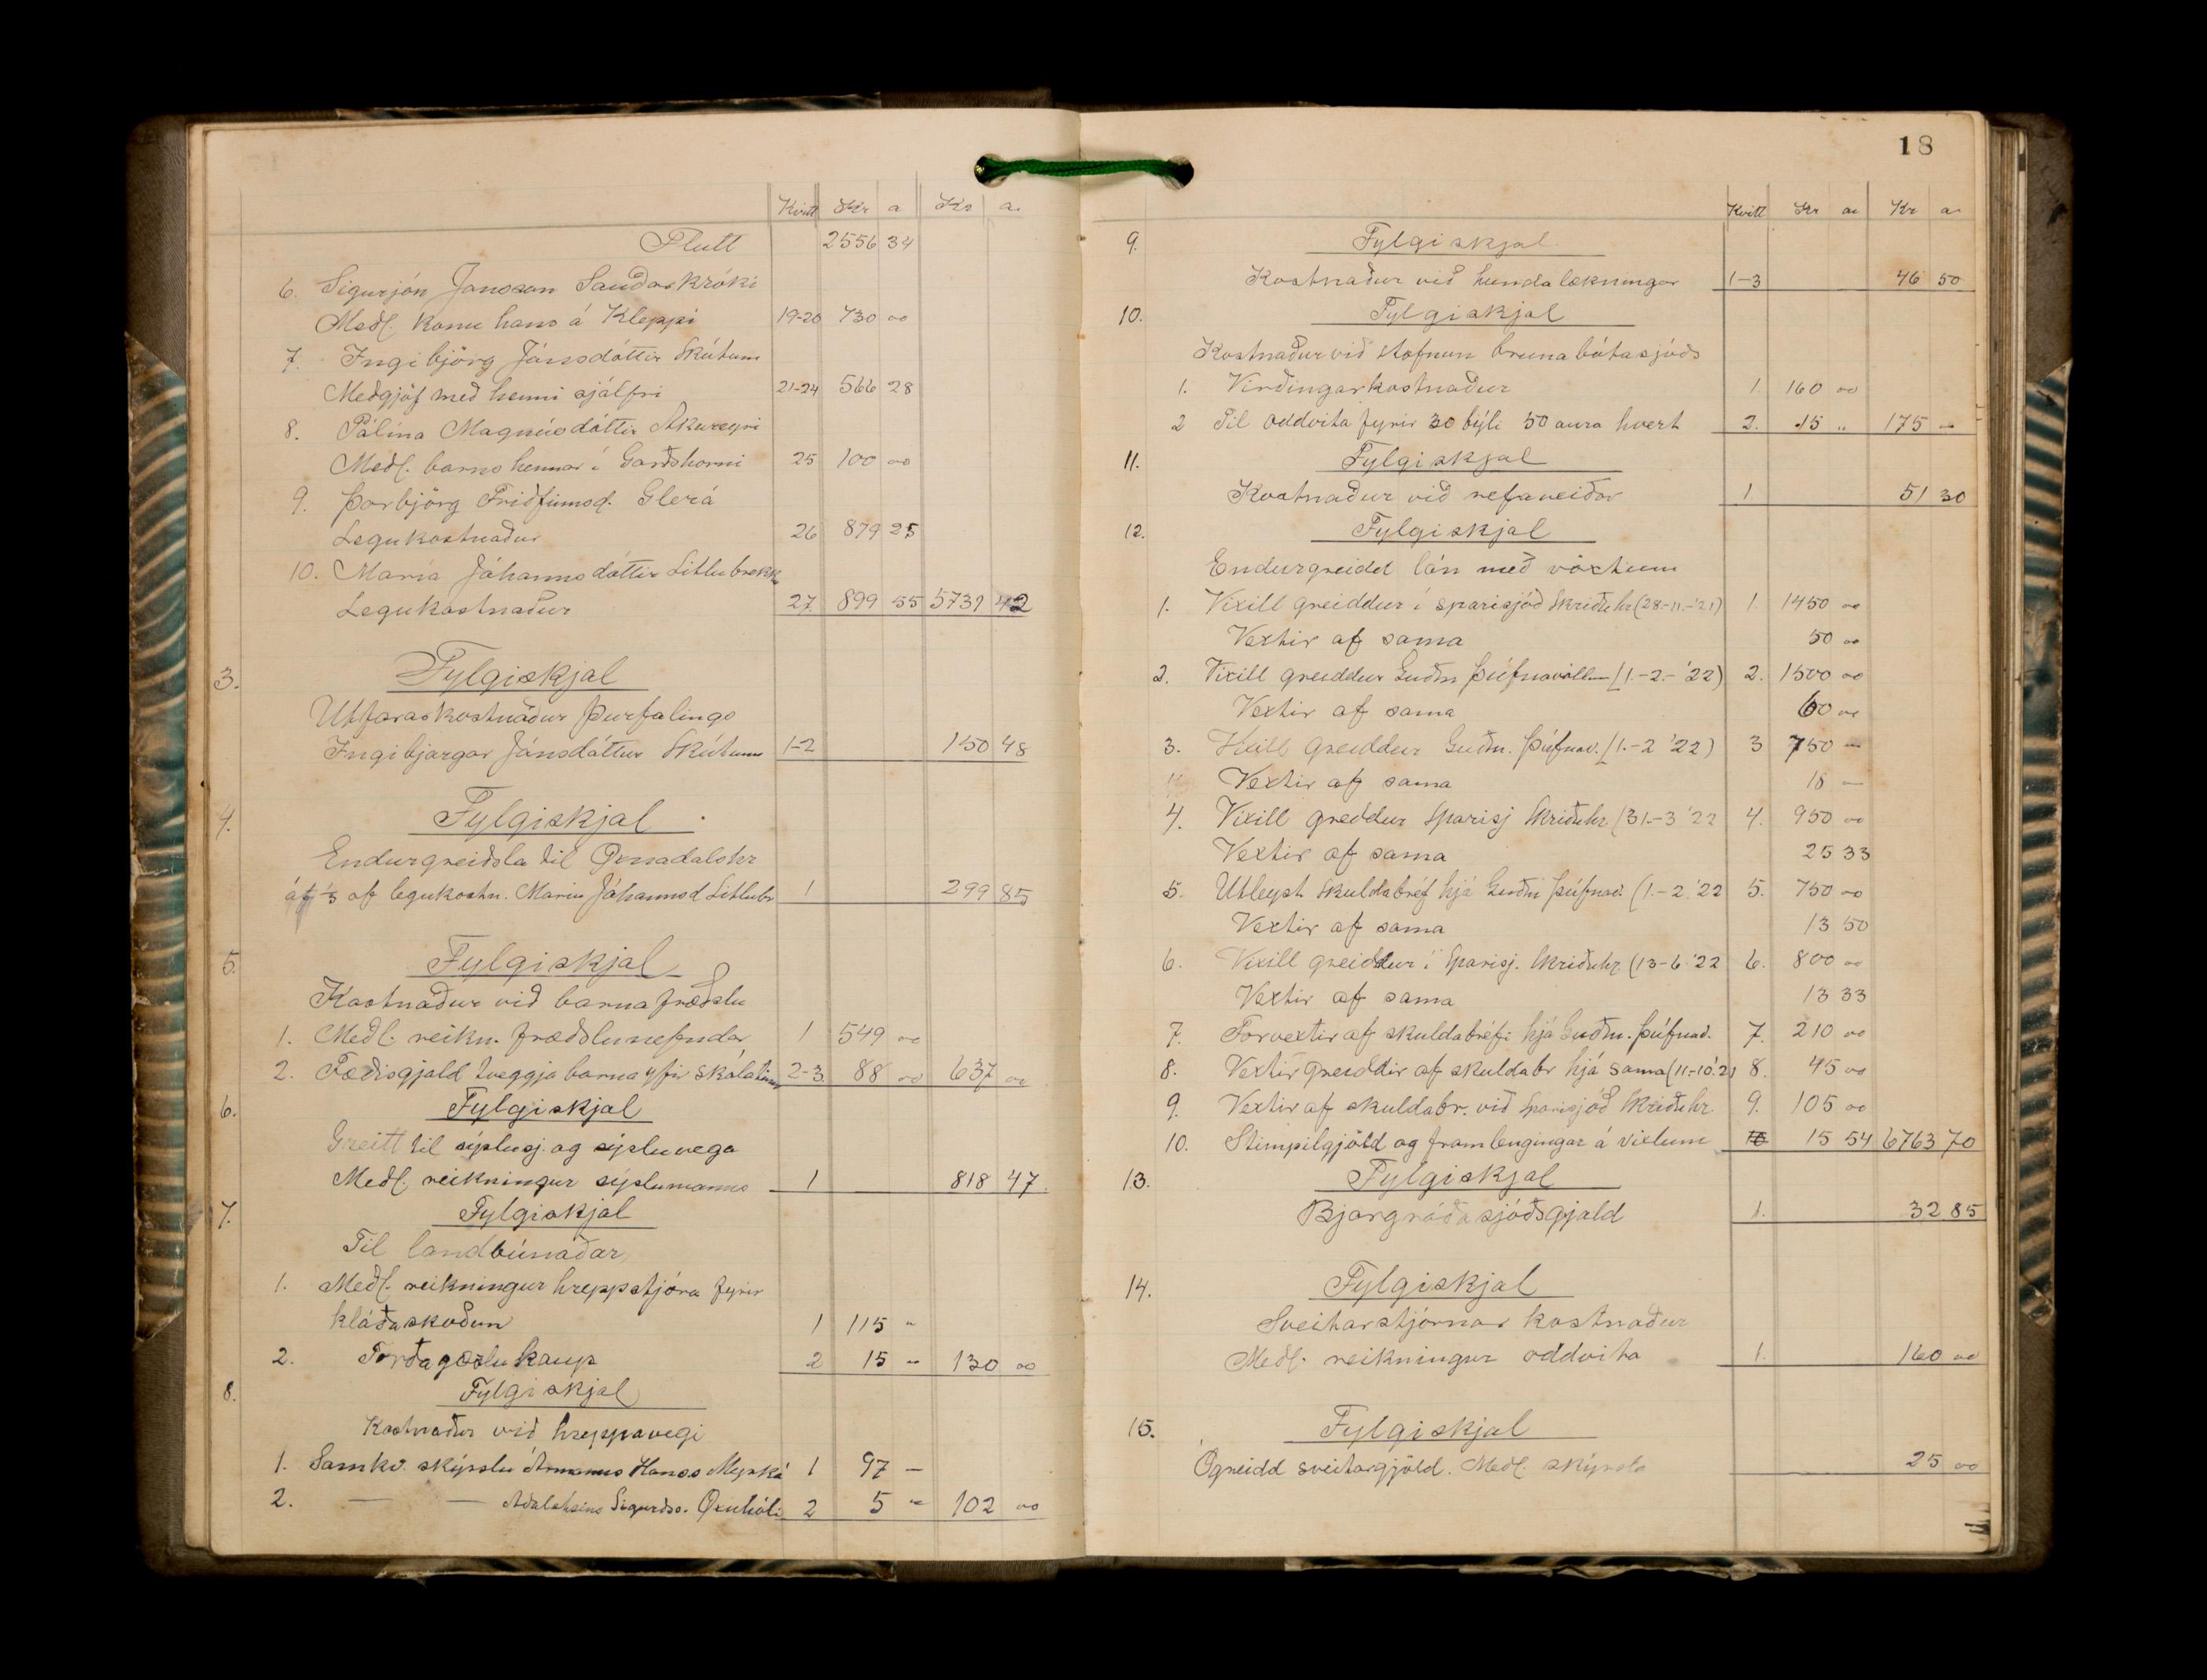 Kvitt Kr a Kr a.
Flutt 2556 34
6. Sigurjón Jónsson Sauðárkróki
Meðl. konu hans á Kleppi 19-20 730 00
7. Ingibjörg Jónsdóttir Skútum
Meðgjöf með henni sjálfri 21-24 566 28
8. Pálína Magnúsdóttir Akureyri
Meðl. barns hennar í Garðshorni 25 100 00
9. Þorbjörg Friðfinnsd. Glerá
Legukostnaður 26 879 25
10. María Jóhannsdóttir Litlubrekk
Legukostnaður 27. 899 55 5731 42
3. Fylgiskjal
Útfararkostnaður þurfalings
Ingibjargar Jónsdóttur Skútum 1-2 150 48
4. Fylgiskjal
Endurgreiðsla til Öxnadalshr
af 1/3 af legukostn. Maríu Jóhannsd Litlubr 1 299 85
5. Fylgiskjal
Kostnaður við barnafræðslu
1. Meðl. reikn. fræðslunefndar 1 549 00
2. Fæðisgjald tveggja barna yfir skólatímann 2-3 88 00 637 00
6. Fylgiskjal
Greitt til sýslusj. og sýsluvega
Meðl. reikningur sýslumanns 1 818 47.
7. Fylgiskjal
Til landbúnaðar
1. Meðl. reikningur hreppstjóra fyrir
kláðaskoðun 1 115 "
2. Forðagæslukaup 2 15 - 130 00
8. Fylgiskjal
Kostnaður við hreppavegi
1. Samkv. skýrslu Ármanns Hanss Myrká 1 97 -
2. — — Aðalsteins Sigurðss. Öxnhóli 2 5 - 102 00
18
Kvitt Kr au Kr a
9. Fylgiskjal
Kostnaður við hundalækningar 1-3 46 50
10. Fylgiskjal
Kostnaður við stofnun brunabótasjóðs
1. Virðingarkostnaður 1. 160 00
2 Til oddvita fyrir 30 býli 50 aura hvert 2. 15 " 175 -
11. Fylgiskjal
Kostnaður við refaveiðar 1. 51 30
12. Fylgiskjal
Endurgreidd lán með vöxtum
1. Víxill greiddur í sparisjóð Skriðuhr (28.-11.-'21) 1. 1450 00
Vextir af sama 50 00
2. Víxill greiddur Guðm Þúfnavöllum (1.-2.-'22) 2. 1500 00
Vextir af sama 60 00
3. Víxill greiddur Guðm. Þúfnav. (1.-2 '22) 3 750 -
Vextir af sama 18 -
4. Víxill greiddur Sparisj Skriðuhr (31.-3 '22 4. 950 00
Vextir af sama 25 33
5. Útleyst skuldabréf hjá Guðm Þúfnav. (1.-2. '22 5. 750 00
Vextir af sama 13 50
6. Víxill greiddur í Sparisj. Skriðuhr (13-6 '22 6. 800 00
Vextir af sama 13 33
7. Forvextir af skuldabréfi hjá Guðm. Þúfnav. 7. 210 00
8. Vextir greiddir af skuldabr hjá sama (11.-10.'21 8. 45 00
9. Vextir af skuldabr. við Sparisjóð Skriðuhr. 9. 105 00
10. Stimpilgjöld og framlengingar á víxlum 10 15 54 6763 70
13. Fylgiskjal
Bjargráðasjóðsgjald 1. 32 85
14. Fylgiskjal
Sveitarstjórnar kostnaður
Meðl. reikningur oddvita 1. 160 00
15. Fylgiskjal
Ógreidd sveitargjöld. Meðl. skýrsla 25 00